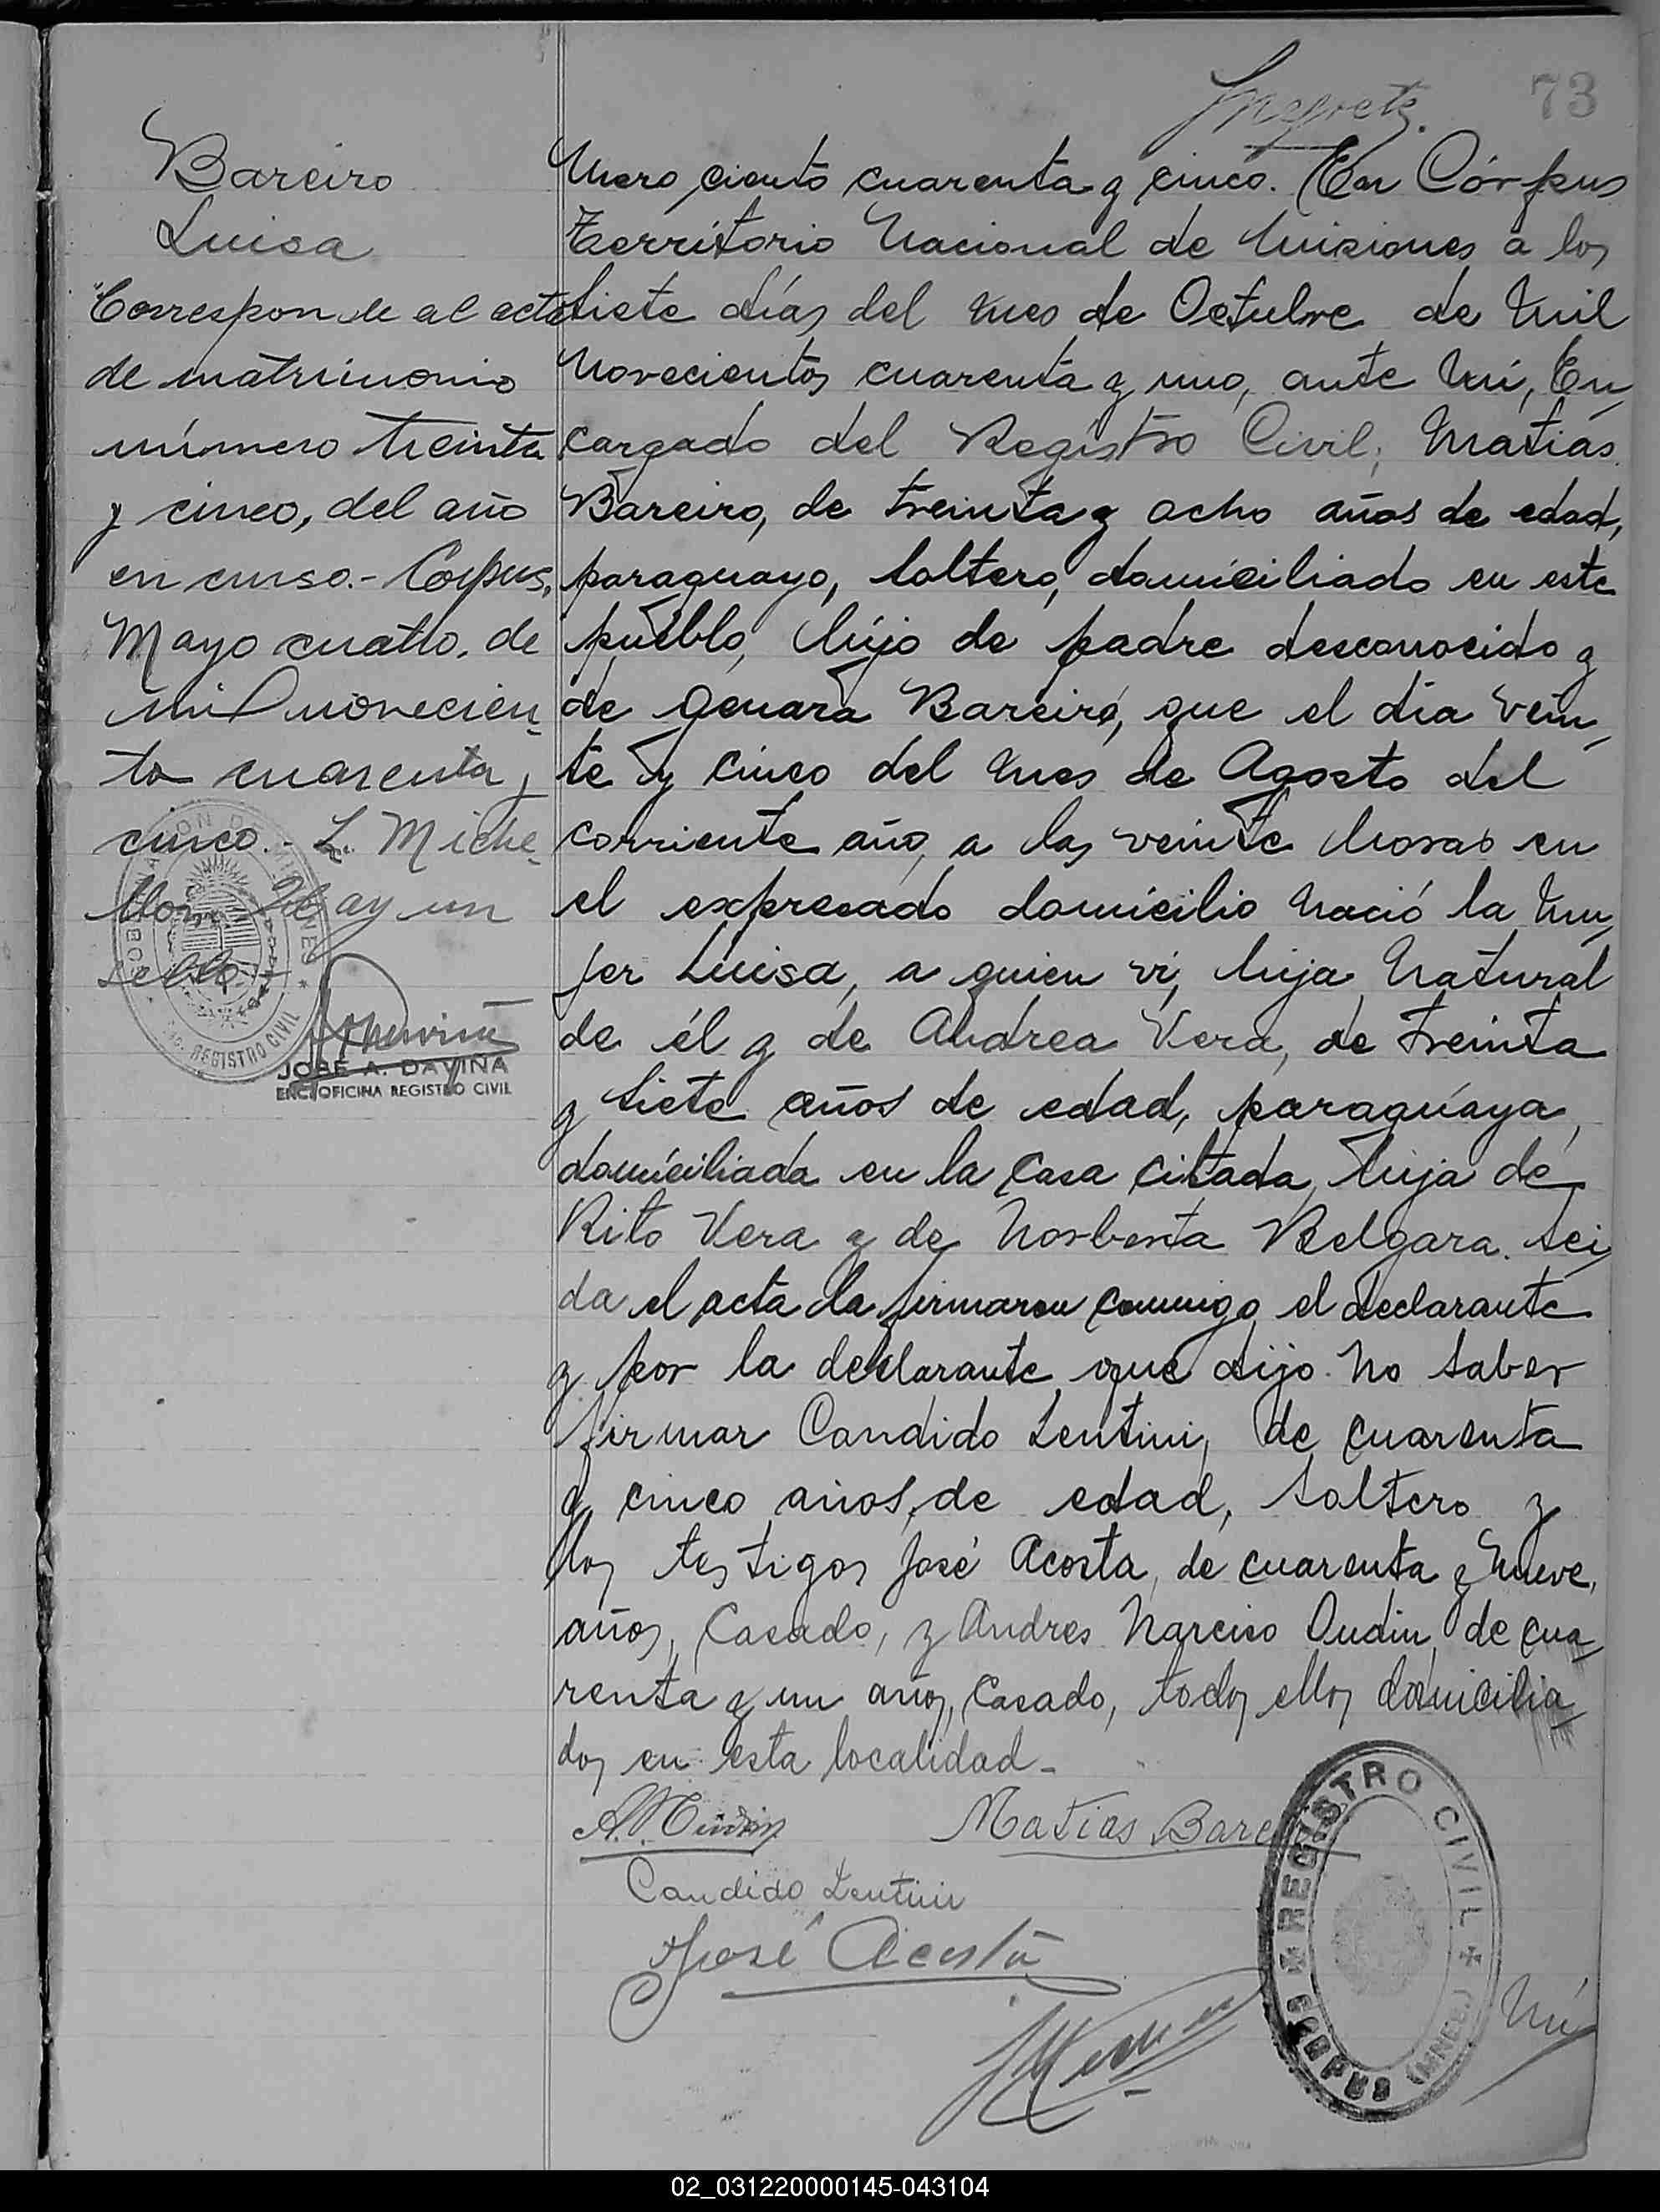 73
Bareiro
Luisa
Corresponde al acta
de matrimonio
número treinta
y cinco, del año
en curso.- Corpus,
Mayo cuatro, de
mil novecien
to cuarenta y
cinco.- L. Miche
llon. Hay un
sello.
GOBERNACION DE MISIONES
REGISTRO CIVIL
JOSÉ A. DAVIÑA
ENC. OFICINA REGISTRO CIVIL
mero ciento cuarenta y cinco. En Córpus
Territorio Nacional de Misiones a los
siete días del mes de Octubre de mil
novecientos cuarenta y uno, ante mí, En
cargado del Registro Civil; Matias
Bareiro, de treinta y ocho años de edad,
paraguayo, soltero, domiciliado en este
pueblo, hijo de padre desconocido y
de Genara Bareiro, que el día vein
te y cinco del mes de Agosto del
corriente año, a las veinte horas en
el expresado domicilio nació la mu
jer Luisa, a quien vi, hija natural
de él y de Andrea Vera, de treinta
y siete años de edad, paraguaya,
domiciliada en la casa citada, hija de
Rito Vera y de Norberta Belgara. Leí
da el acta la firmaron conmigo el declarante
y por la declarante que dijo no saber
firmar Candido Lentini, de cuarenta
y cinco años de edad, soltero y
los testigos José Acosta, de cuarenta y nueve
años, casado, y Andres Narciso Oudin de cua
renta y un años, casado, todos ellos domicilia
dos en esta localidad-
A.N. Oudin Matias Bareiro
Candido Lentini
José Acosta
REGISTRO CIVIL
CORPUS (MNES.)
Nú
02_031220000145-043104